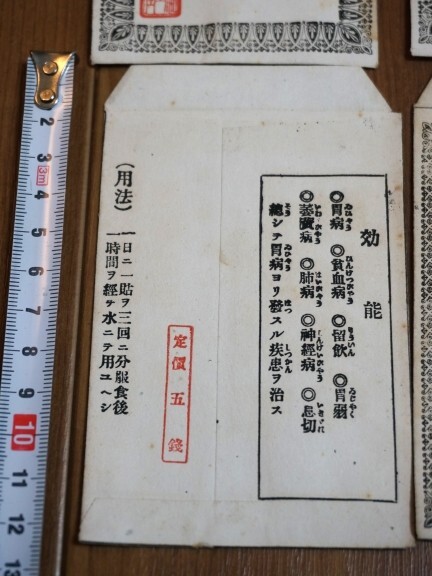 効能
◎胃病 ◎貧血病 ◎留飲 ◎胃弱
◎萎黄病 ◎肺病 ◎神經病 ◎息切
總シテ胃病ヨリ發スル疾患ヲ治ス
定價五錢
(用法)
一日ニ一貼ヲ三回ニ分服食後
一時間ヲ經テ水ニテ用ユヘシ
2
3
3m
4
5
6
7
8
9
10
11
12
13